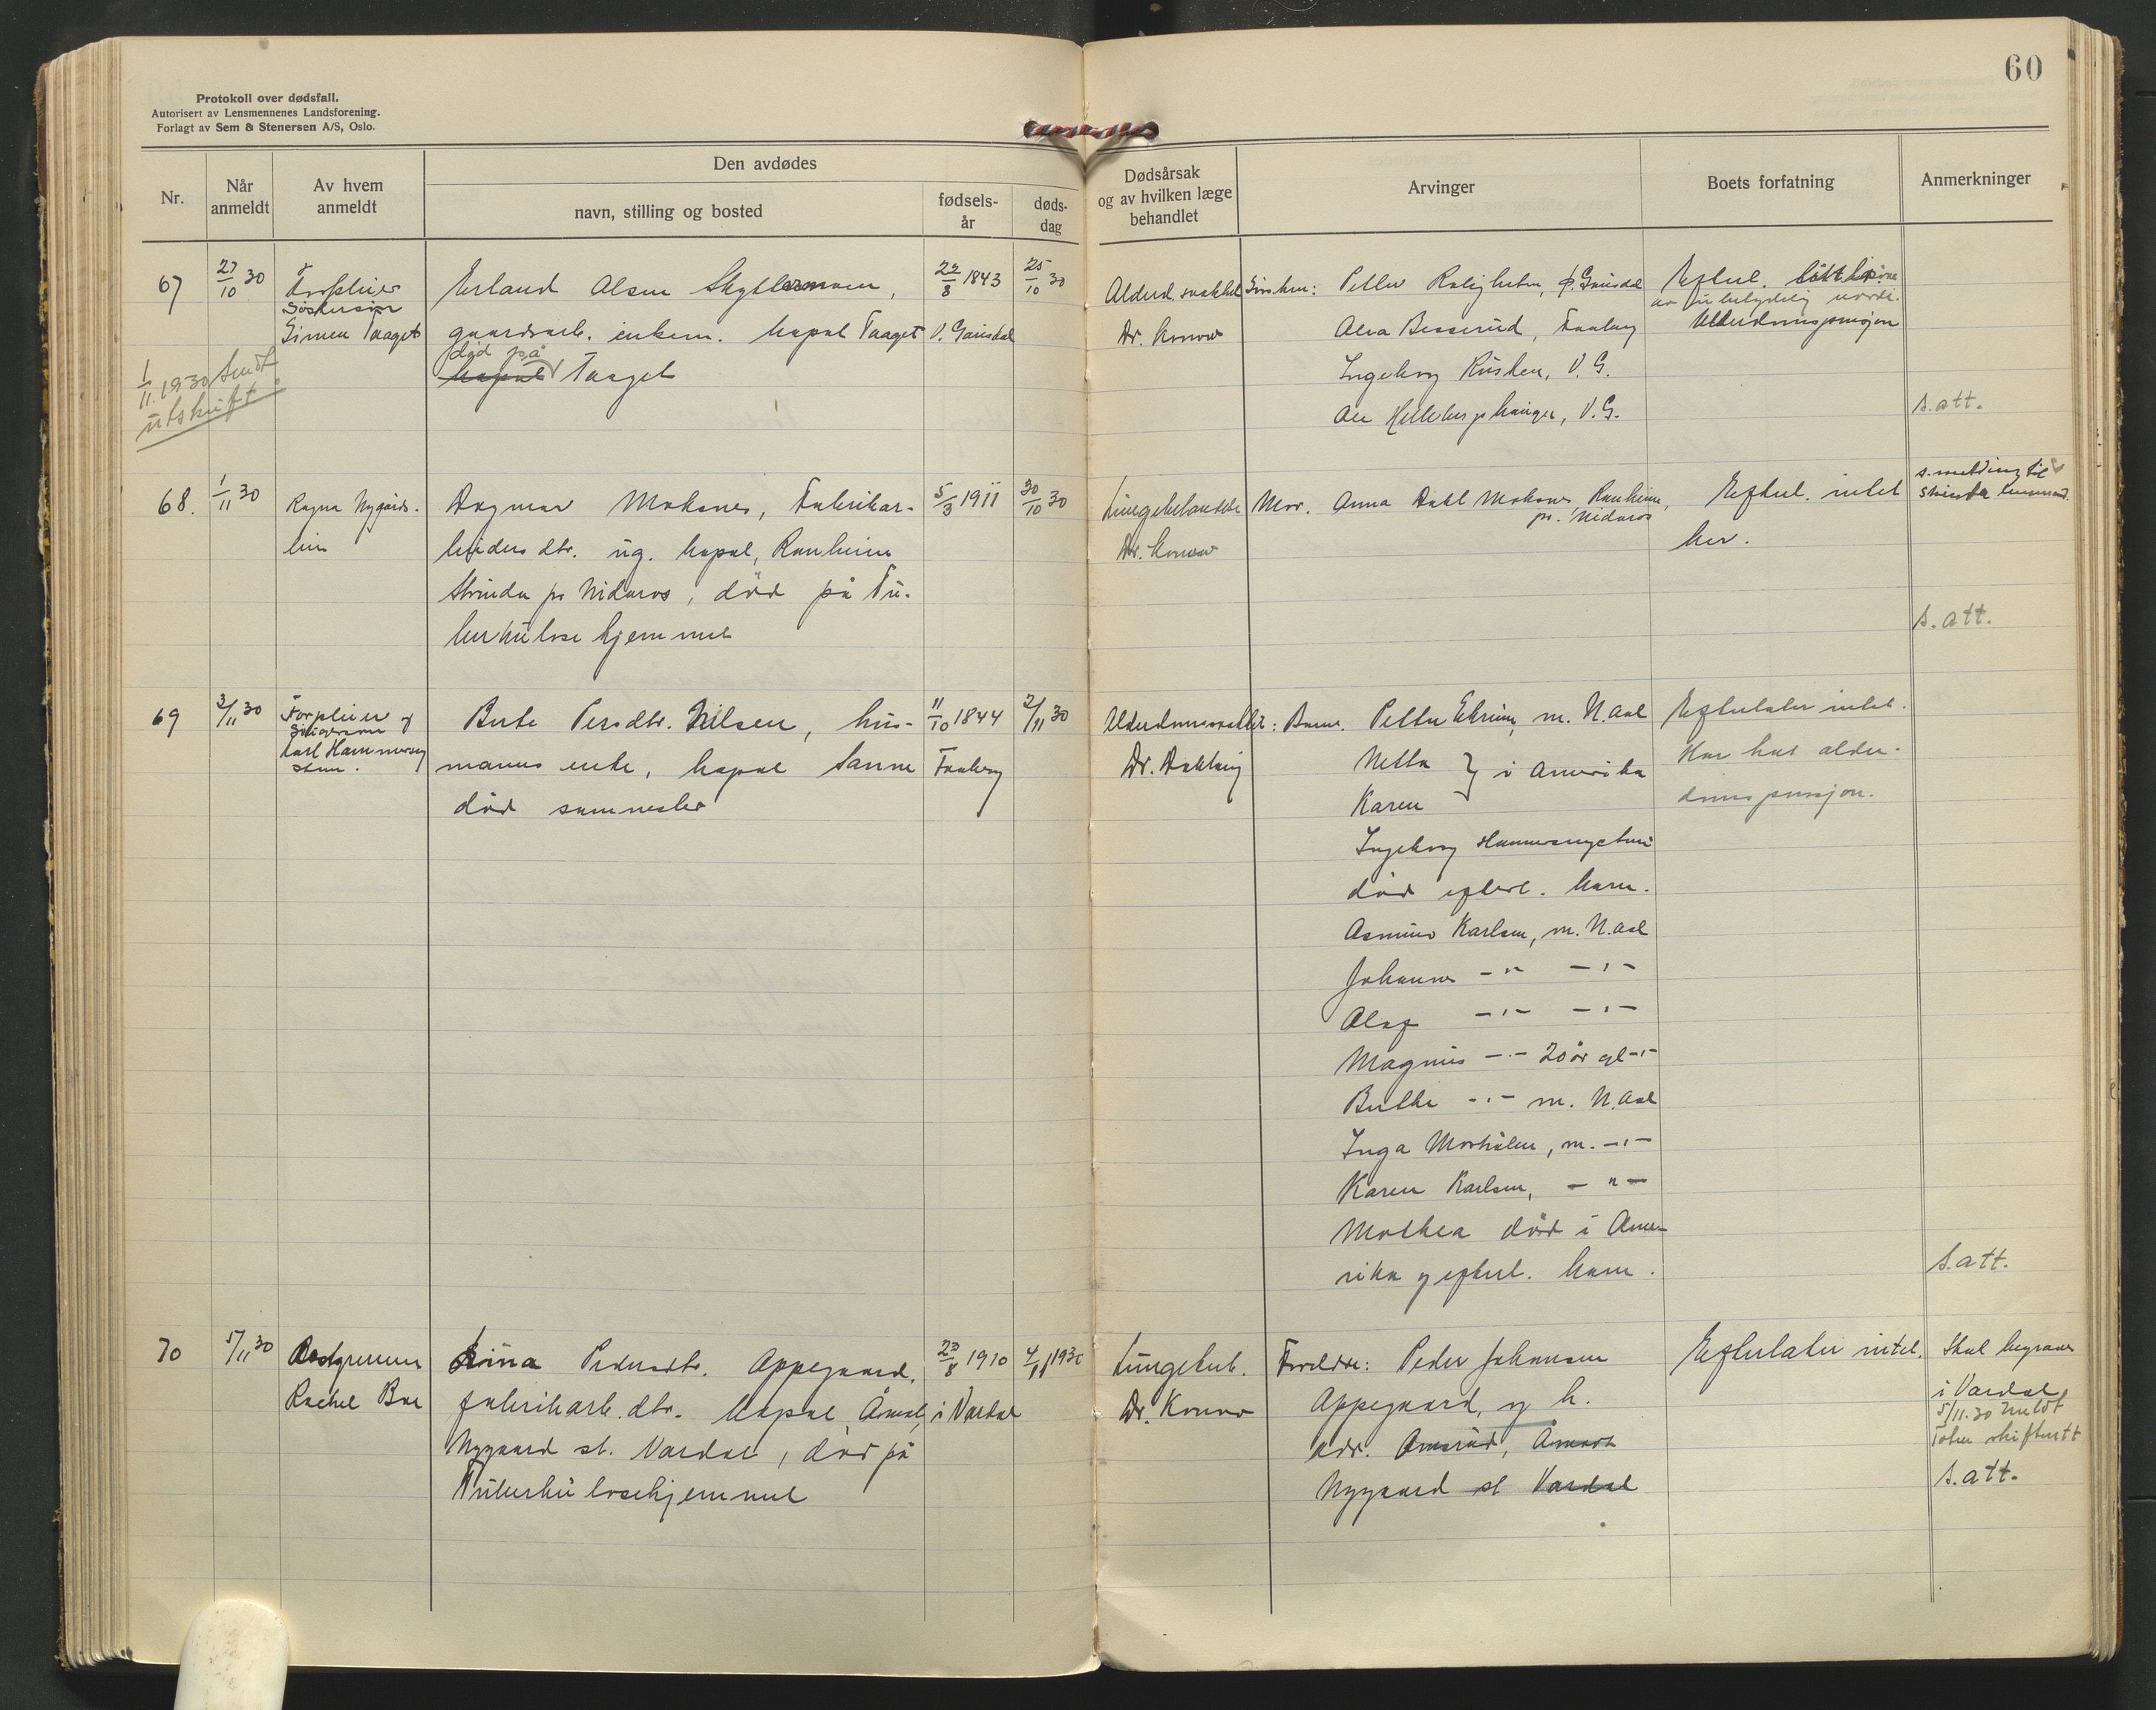 60
Protokoll over dødsfall.
Autorisert av Lensmennenes Landsforening.
Forlagt av Sem & Stenersen A/S, Oslo.
Nr.
Når anmeldt
Av hvem anmeldt
Den avdødes
navn, stilling og bosted
fødselsår
dødsdag
Dødsårsak og av hvilken læge behandlet
Arvinger
Boets forfatning
Anmerkninger
67
27/10 30
Forpleier
Søstersøn
Simen Taaget
Erland Olsen
gaardsarb. enkem. bopæl Taaget V. Gausdal
død på
bopæl Taaget
22/8 1843
25/10 30
Alderd.svakhet
Dr. Konow
Søsken: Petter Roligheten, Ø. Gausdal
Besserud, Faaberg
Ingeborg Rusten, V. G.
V. G.
Efterl. litt
av ubetydelig verdi.
Alderdomspensjon
s. att.
1/11. 1930 Sendt
utskrift
68.
1/11 30
Ragna Nygårdslien
Dagmar Moksnes, Fabrikarbeiders
dtr. ug. bopæl, Ranheim
Strinda pr Nidaros, død på Tuberkulosehjemmet
5/3 1911
30/10 30
Lungetuberkulose
Dr. Konow
Mor. Anna Dahl Moksnes, Ranheim,
pr. Nidaros
Efterl. intet
her.
s. melding til
Strinda lensmand.
s. att.
69
3/11 30
Forpleier og
Karl Hammerseng
Berte Persdtr. Nilsen, husmanns
enke, bopæl Sanne Faaberg
død sammesteds
11/10 1844
2/11 30
Alderdomssvakhet:
Dr. Dahling
Barn. Petter m. N. Aal
Netta } i Amerika
Karen
Ingeborg Hammersengstuen
død efterl. barn.
Asmund Karlsen, m. N. Aal
Johannes -"- -"-
Olaf -"- -"-
Magnus -"- 20 år gl -"-
Berthe -"- m. N. Aal
Inga m. -"-
Karen Karlsen, -"-
Mathea død i Amerika
og efterl. barn.
Efterlater intet.
Har hat alderdomspensjon.
s. att.
70
5/11 30
Bestyrerinne
Rachel Boe
Anna Pedersdtr. Appegaard,
fabrikarb. dtr. bopæl i Vardal
Nygaard st. Vardal, død på
Tuberkulosehjemmet
23/8 1910
4/11 1930
Lungetub.
Dr. Konow
Foreldre: Peder Johansen
Appegaard, og h.
adr.
Nygaard st Vardal
Efterlater intet.
Skal begraves
i Vardal
5/11.30 meldt
Toten skifterett
s. att.